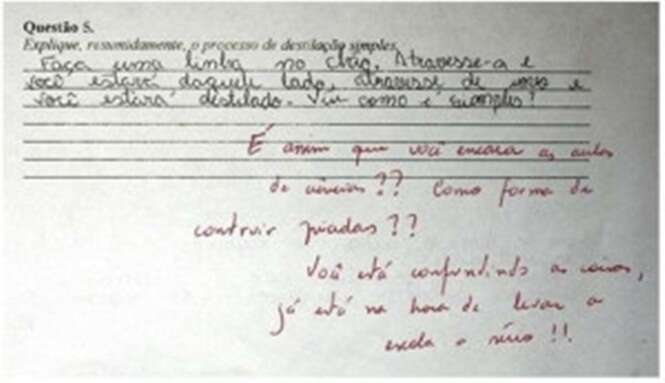 Questão 5.
Explique, resumidamente, o processo de destilação simples.
Faça uma linha no chão. Atravesse-a e
você estará daquele lado, atravesse de novo e
você estará distilado. Viu como é simples?
É assim que você encara as aulas
de ciências?? Como forma de
construir piadas??
Você está confundindo as coisas,
já está na hora de levar a
escola a sério!!.